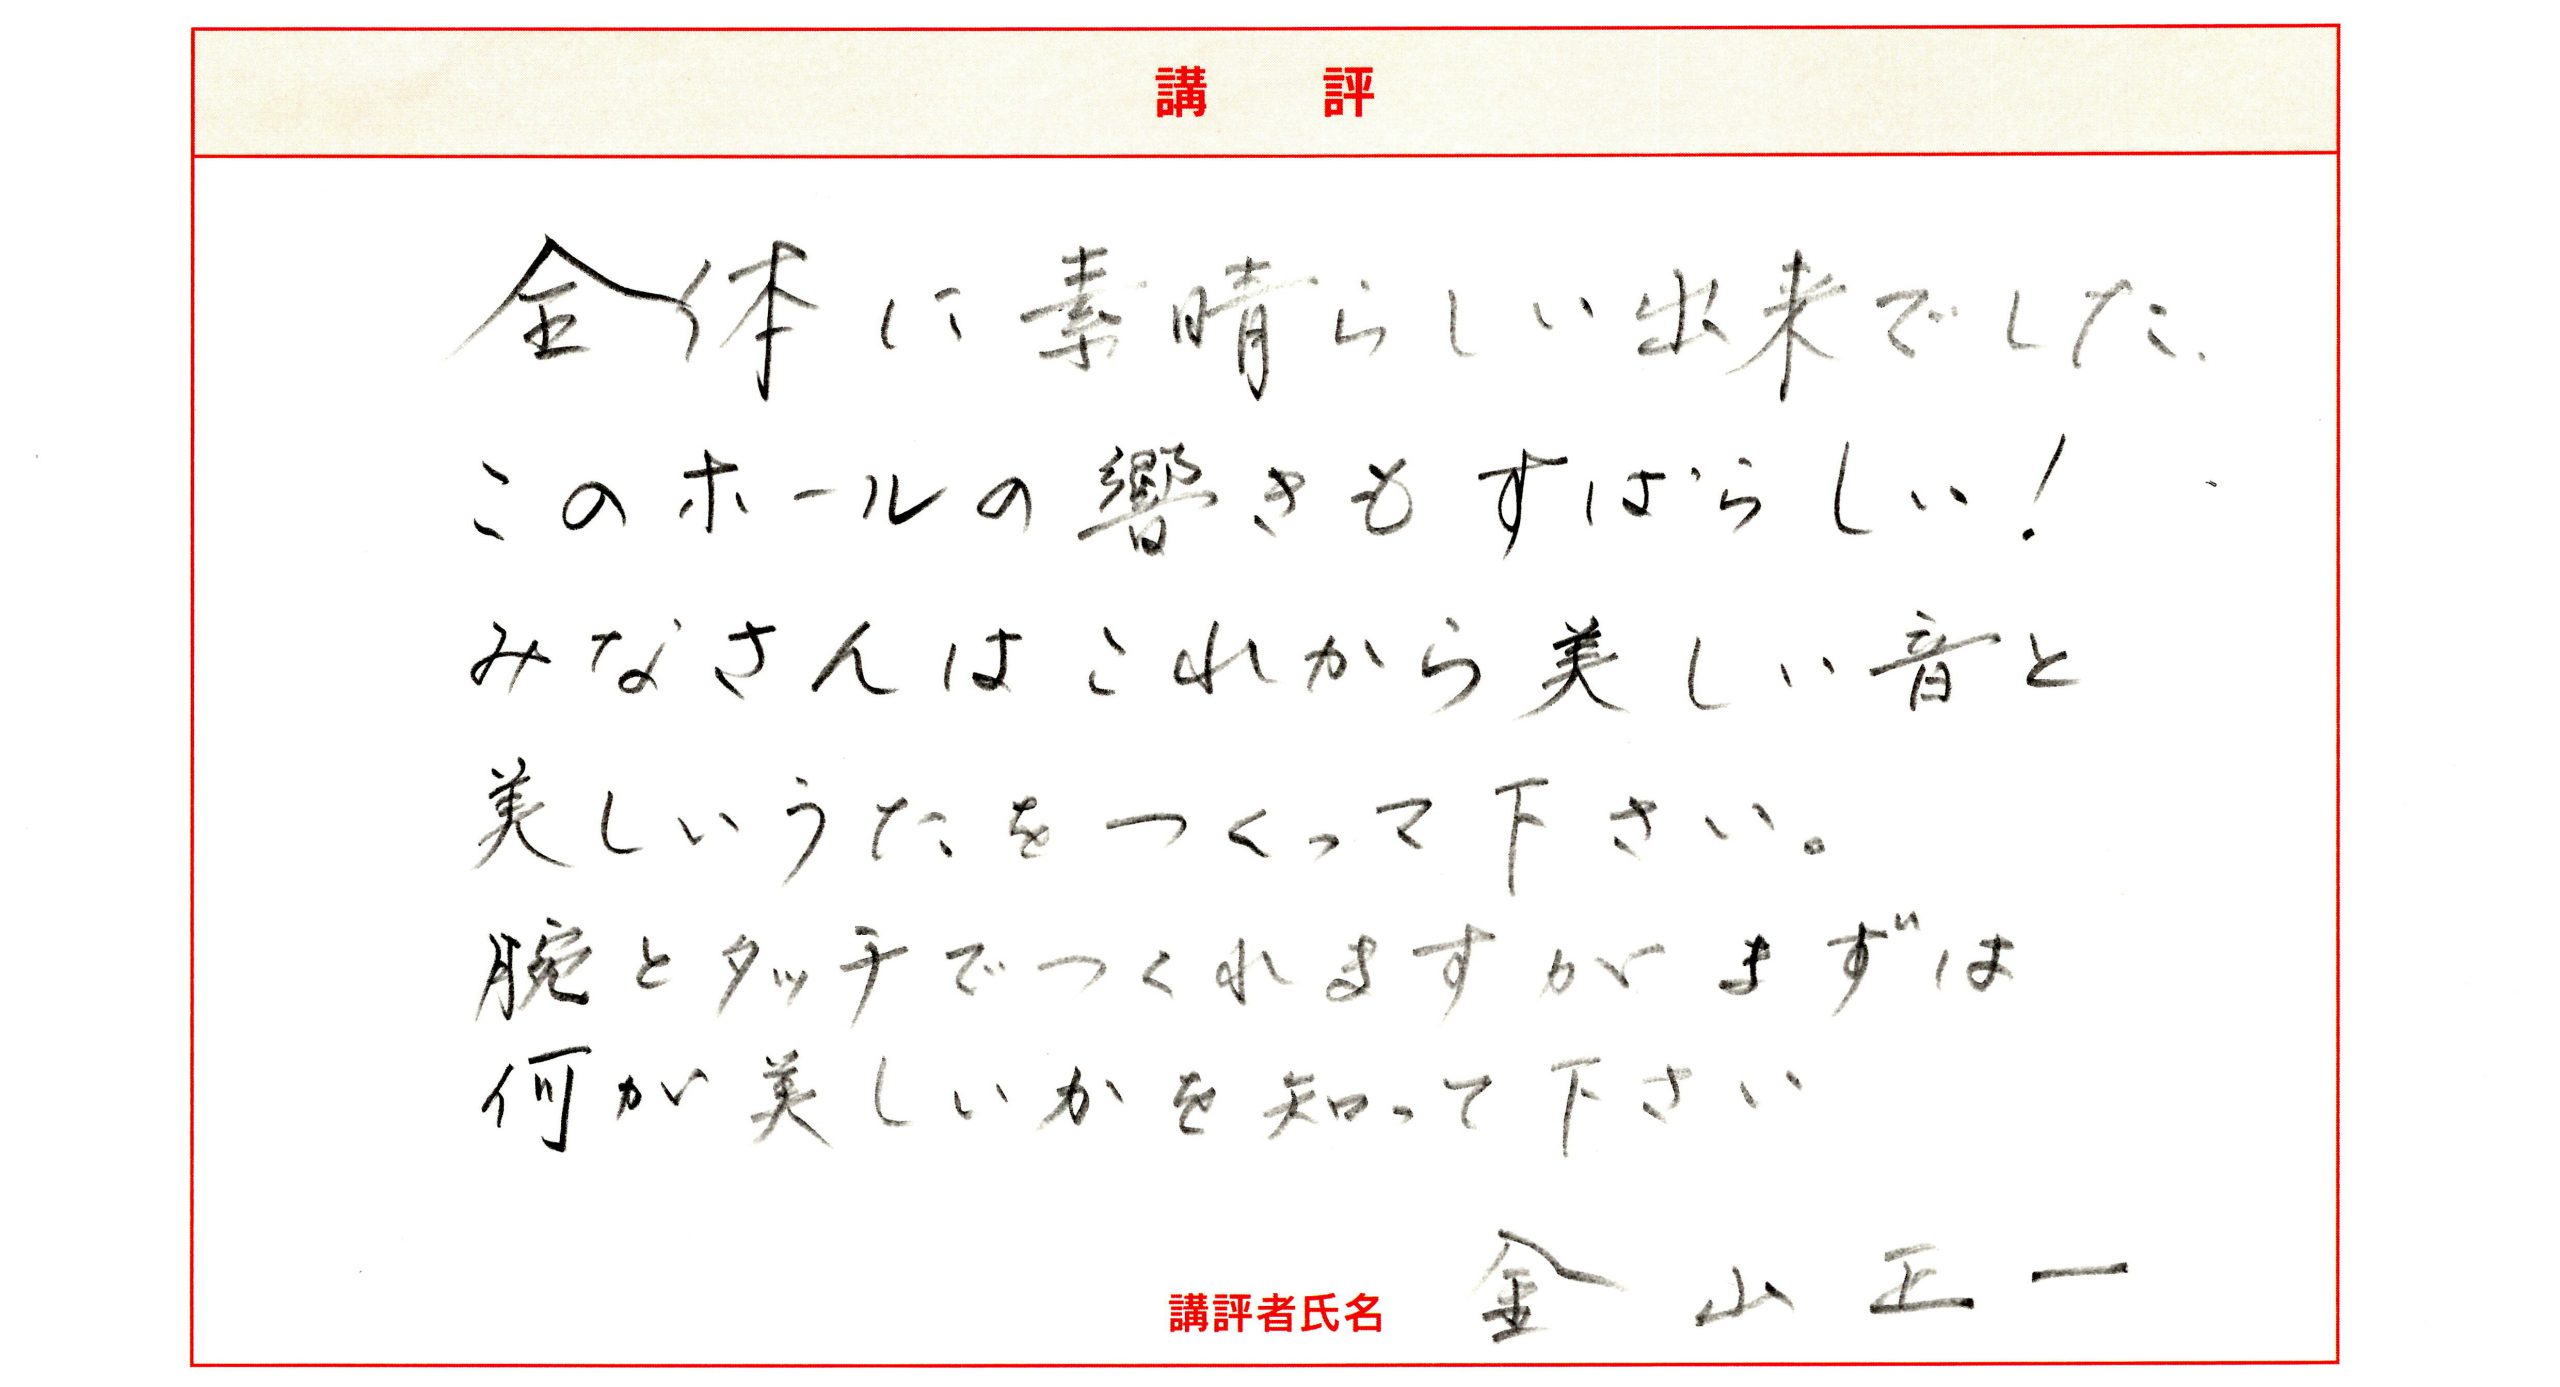 講 評
全体に素晴らしい出来でした.
このホールの響きもすばらしい!
みなさんはこれから美しい音と
美しいうたをつくって下さい。
腕とタッチでつくれますがまずは
何が美しいかを知って下さい
講評者氏名 金山正一